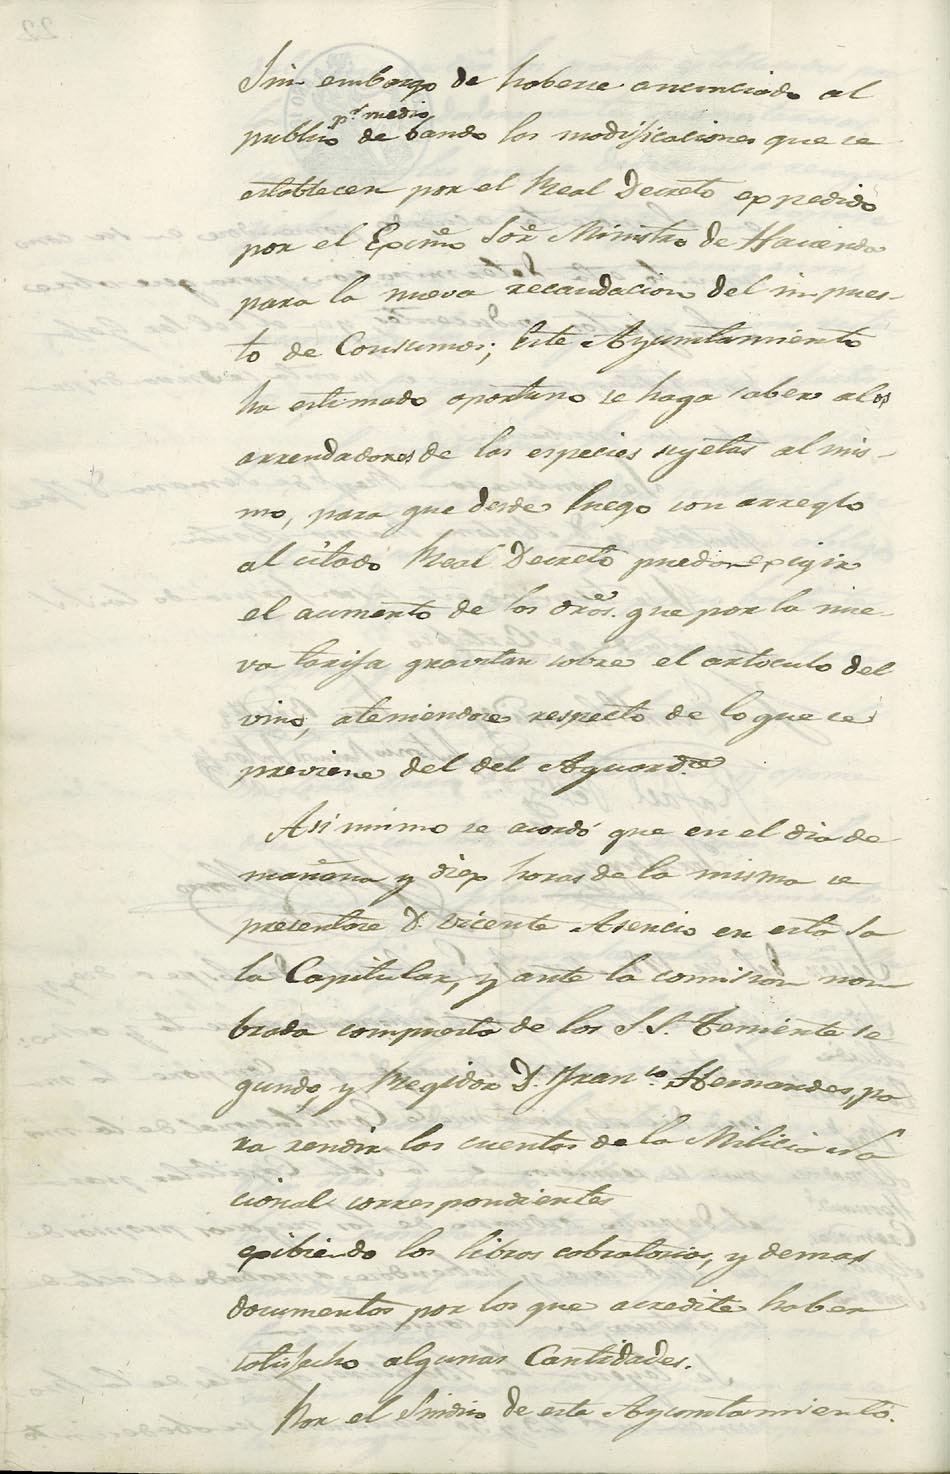 Sin embargo de haberse anunciado al
p.r medio
publico de bando las modificaciones que se
establecen por el Real Decreto expedido
por el Excmo Sor Ministro de Hacienda
para la nueva recaudacion del impues-
to de Consumos; Este Ayuntamiento
ha estimado oportuno se haga saber a los
arrendadores de las especies sujetas al mis-
mo, para que desde luego con arreglo
al citado Real Decreto puedan exigir
el aumento de los dros. que por la nue-
va tarifa gravitan sobre el articulo del
vino, ateniendose respecto de lo que se
previene del del Aguard.te
Asi mismo se acordó que en el dia de
mañana y diez horas de la misma se
presentase D. Vicente Asencio en esta Sa
la Capitular, y ante la comision nom
brada compuesta de los S.S. Teniente se
gundo, y Regidor D. Fran.co Hernandes, pa
ra rendir las cuentas de la Milicia Na
cional correspondientes
exibiendo los libros cobratorios, y demas
documentos por los que acredite haber
satisfecho algunas Cantidades.
Por el Sindico de este Ayuntamiento.